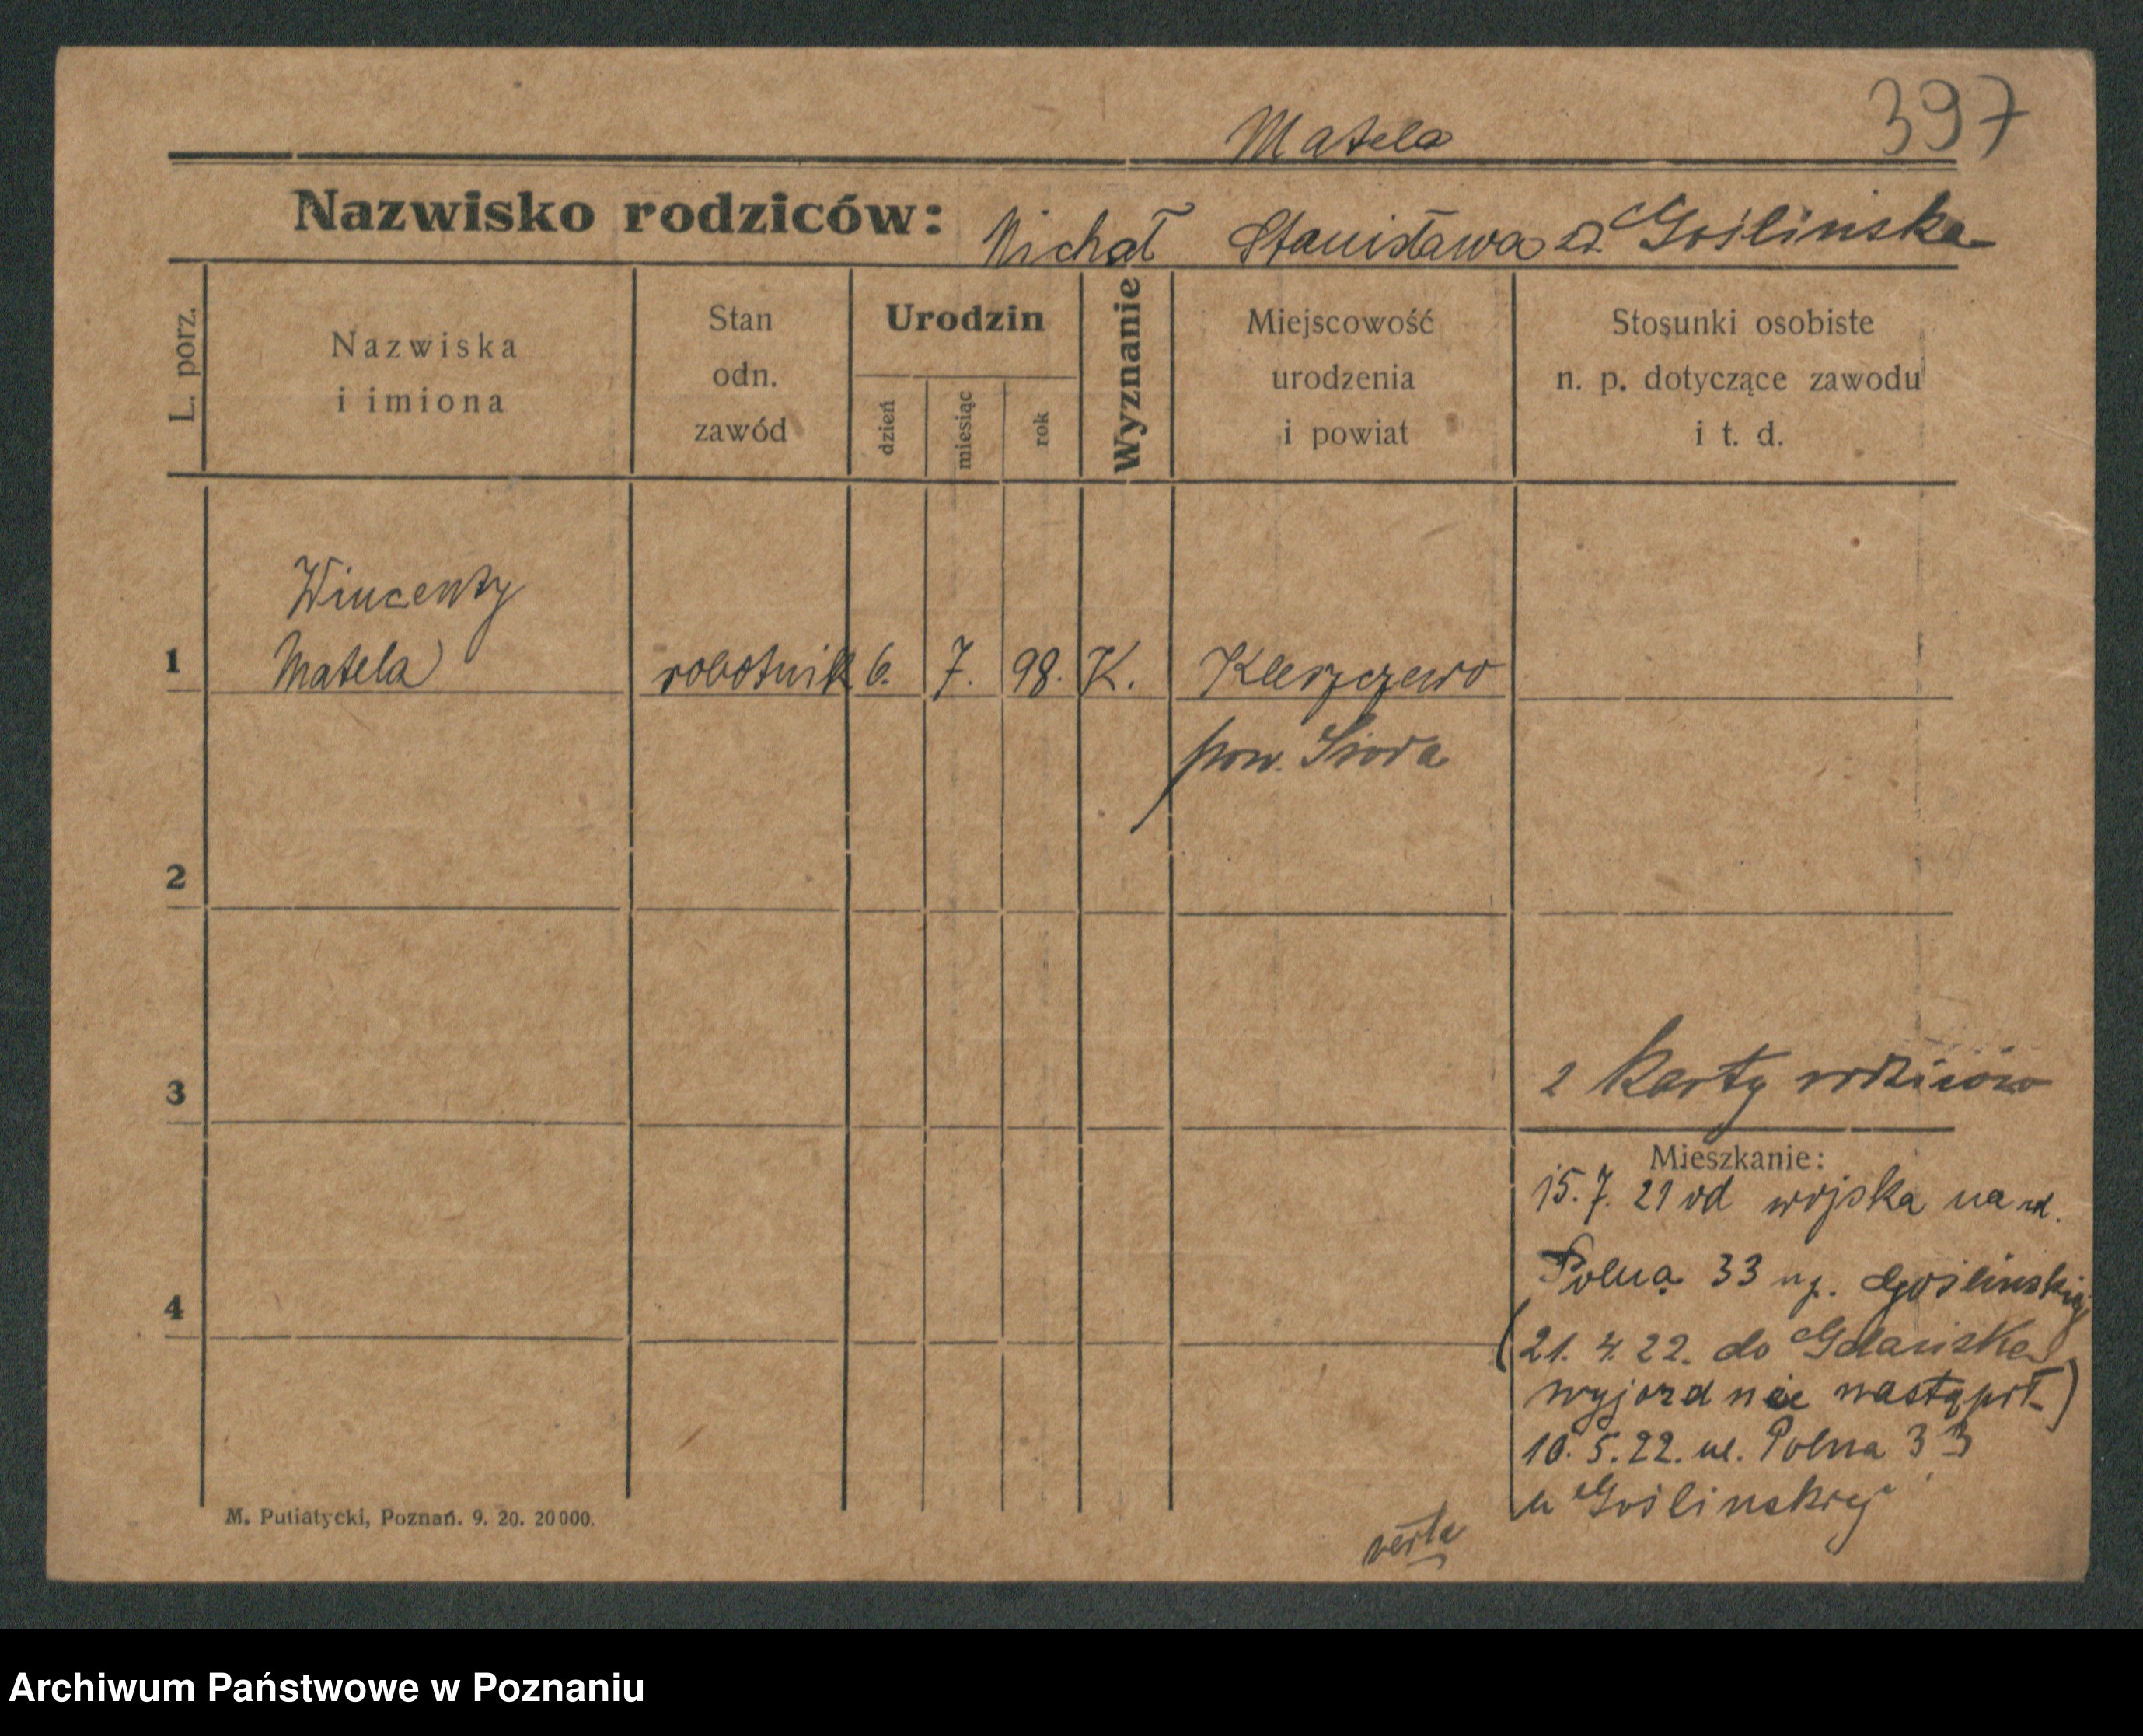 397
Matela
Nazwisko rodziców: Michał Stanisława d. Goślinska
L. porz.
Nazwiska
i imiona
Stan
odn.
zawód
Urodzin
dzień
miesiąc
rok
Wyznanie
Miejscowość
urodzenia
i powiat
Stosunki osobiste
n. p. dotyczące zawodu
i t. d.
Wincenty
1 Matela robotnik 6. 7. 98. K. Kleszczewo
pow. Środa
2
3
z karty rodziców
Mieszkanie:
15. 7. 21 od wojska na ul.
Polna 33 Goślinskiej
4
(21. 4. 22. do Gdańska
wyjazd nie nastąpił)
10. 5. 22. ul. Polna 33
u Goślinskiej
verte
M. Putiatycki, Poznań. 9. 20. 20000.
Archiwum Państwowe w Poznaniu